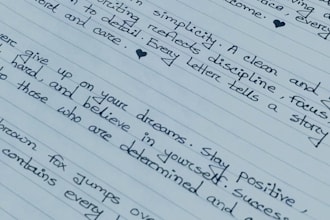 every
come. ♥
simplicity. A clean and
writing reflects discipline, focus,
to detail. Every letter tells a story
and care. ♥
give up on your dreams. Stay positive,
hard, and believe in yourself. Success
those who are determined and
brown fox jumps
contains every